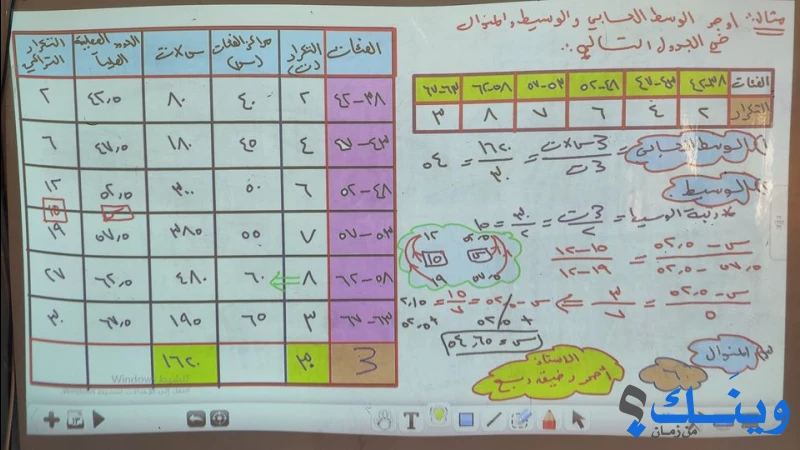 مثال: أوجد الوسط الحسابي والوسيط والمنوال
في الجدول التالي:
الفئات ٣٨-٤٢ ٤٣-٤٧ ٤٨-٥٢ ٥٣-٥٧ ٥٨-٦٢ ٦٣-٦٧
التكرار ٢ ٤ ٦ ٧ ٨ ٣
الوسط الحسابي = مج س×ت / مج ت = ١٦٢٠ / ٣٠ = ٥٤
الوسيط
* رتبة الوسيط = مج ت / ٢ = ٣٠ / ٢ = ١٥
س - ٥٢,٥ / ٥٧,٥ - ٥٢,٥ = ١٥ - ١٢ / ١٩ - ١٢
س - ٥٢,٥ / ٥ = ٣ / ٧
س - ٥٢,٥ = ١٥ / ٧ = ٢,١٥
+ ٥٢,٥ + ٥٢,٥
س = ٥٤,٦٥
١٢ ٥٢,٥
١٥ س
١٩ ٥٧,٥
المنوال
٦٠
الأستاذ
الفئات التكرار (ت) مراكز الفئات (س) س×ت الحدود الفعلية العليا التكرار التراكمي
٣٨-٤٢ ٢ ٤٠ ٨٠ ٤٢,٥ ٢
٤٣-٤٧ ٤ ٤٥ ١٨٠ ٤٧,٥ ٦
٤٨-٥٢ ٦ ٥٠ ٣٠٠ ٥٢,٥ ١٢
١٥
٥٣-٥٧ ٧ ٥٥ ٣٨٥ ٥٧,٥ ١٩
٥٨-٦٢ ٨ ٦٠ ٤٨٠ ٦٢,٥ ٢٧
٦٣-٦٧ ٣ ٦٥ ١٩٥ ٦٧,٥ ٣٠
مج ٣٠ ١٦٢٠
تنشيط Windows
وينك؟
من زمان